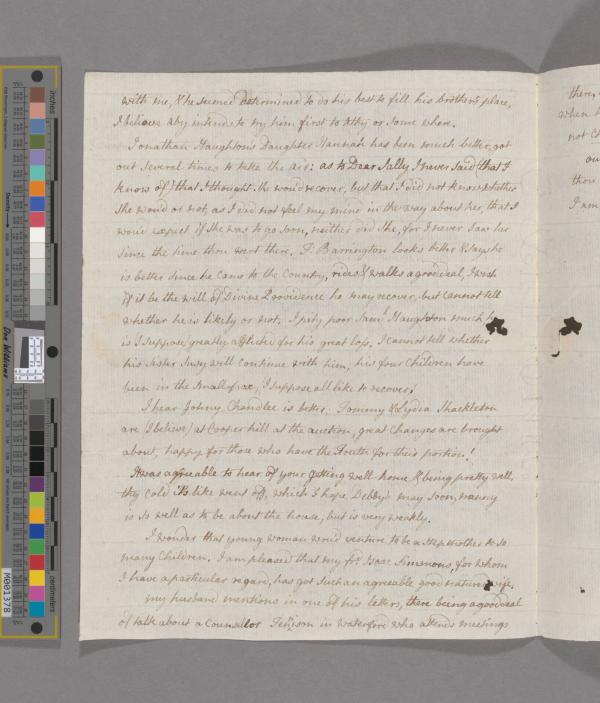 with me, & he seemed determined to do his best to fill his brother's place,
I believe Aby intends to try him first to Athy or some where.
Jonathan Haughton's Daughter Hannah has been much better, got
out several times to take the air: as to Dear Sally I never said (that I
know of) that I thought she would recover, but that I did not know whether
she would or not, as I did not feel my mind in the way about her, that I
would expect if she was to go soon, neither did she, for I never saw her
since the time thou wert there. T. Barrington looks better & says he
is better since he came to the Country, rides & walks a good deal, I wish
if it be the will of Divine Providence he may recover, but cannot tell
whether he is likely or not. I pity poor Saml. Haughton much
is I suppose greatly afflicted for his great loss. I cannot tell whether
his Sister Susy will continue with him, his four Children have
been in the Smallpox, I suppose all like to recover.
I hear Johny Chandlee is better. Tommy & Lydia Shackleton
are (I believe) at Cooper hill at the auction, great Changes are brought
about, happy for those who have the Truth for their portion!
It was agreeable to hear of your getting well home & being pretty well,
thy cold it's like went off, which I hope Debby's may soon, nanny
is so well as to be about the house, but is very weakly.
I wonder that young woman would venture to be a stepmother to so
many Children. I am pleased that my fr. Isaac Simmons, for whom
I have a particular regard, has got such an agreeable good natured wife.
my husband mentions in one of his letters, there being a good deal
of talk about a Counsellor Tenison in Waterford who attends meetings
there,
when
not
ou
thou
I am